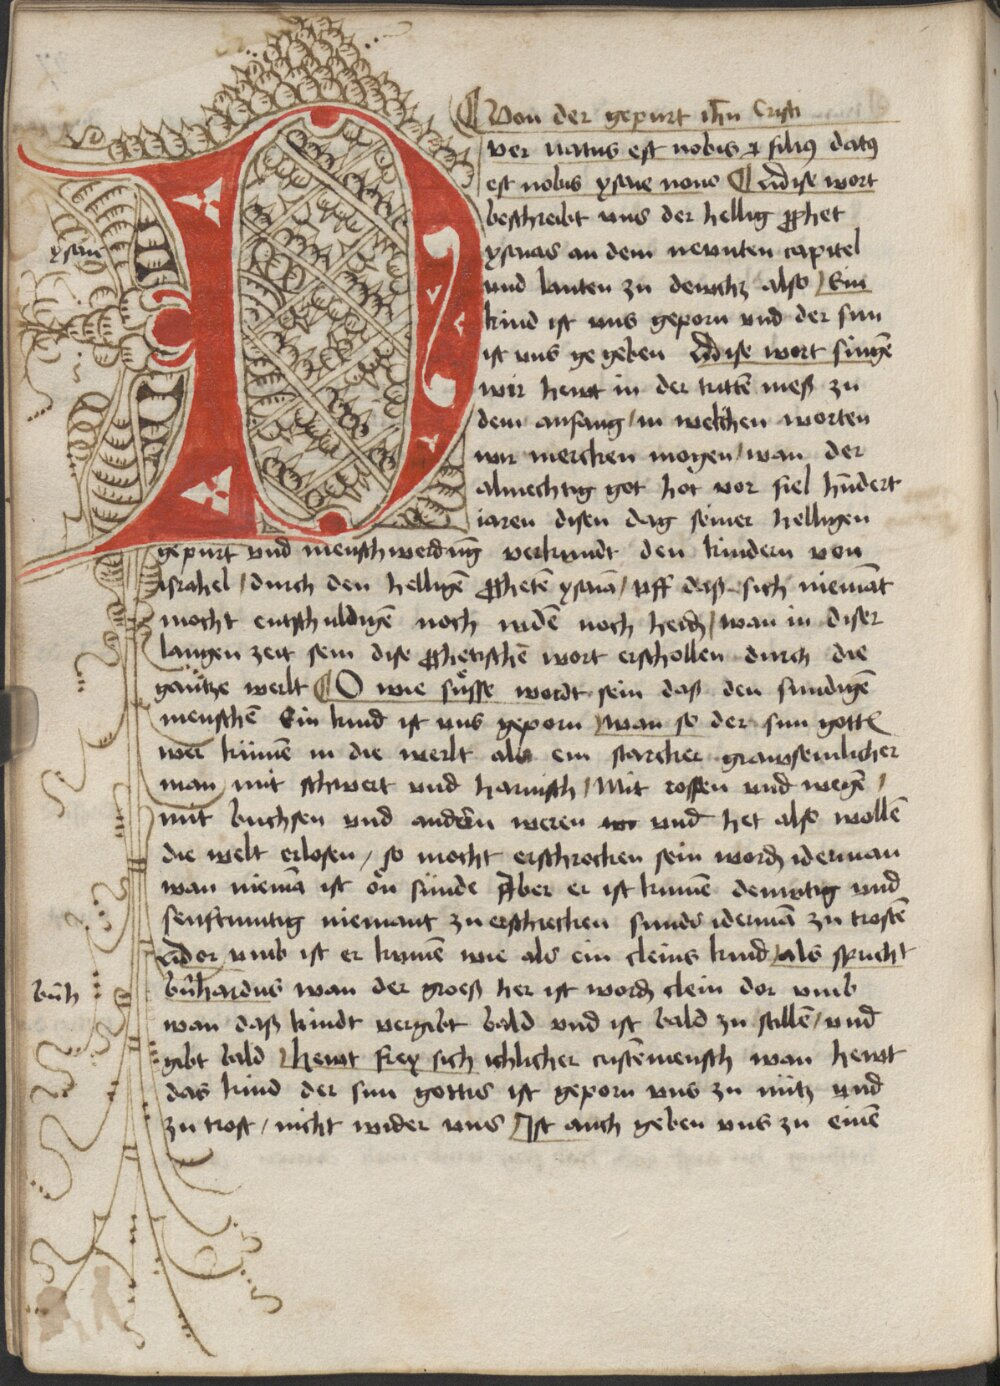 ¶ Von der gepurt ih̄u Cristi
Puer natus est nobis ⁊ filiꝰ datꝰ
est nobis ysaie nono ¶ Dise wort
beschreibt vns der heilig ꝓphet
ysaias an dem neunten capitel
vnd lauten zu dewtz also / Ein
kind ist vns geporn vnd der sun
ist vns ge geben Dise wort singē
wir hewt in der tritte meß zu
dem anfang / in welchen worten
wir mercken mogen / wan der
almechtig got hot vor fiel hūdert
iaren disen dag seiner heiligen
gepurt vnd menschwerdung verkundt den kindern von
israhel / durch den heiligē ꝓphetē ysaiā / vff daß sich niemāt
mocht entschuldigē noch iudē noch heid / wan in diser
langen zeit sein dise ꝓphetischē wort erschollen durch die
gantze werlt ¶ O wie süsse wordt sein daß den sundigē
menschē Ein kind ist vns geporn / wan so der sun gottes
wer kumē in die werlt als ein starcker grawsemlicher
man mit schwert vnd harnisch / Mit rossen vnd wegē /
mit buchsen vnd andern weren vnd het also wollē
die welt erlosen / so mocht erschrocken sein word iderman
wan niemā ist on sunde Aber er ist kumē demutig vnd
senftmutig niemant zu erschrecken sunder idermā zu trostē
Dor vmb ist er kumē wie als ein cleins kind / als spricht
bn̄hardus wan der groeß her ist word clein dor vmb
wan daß kindt vergibt bald vnd ist bald zu stillē / vnd
gibt bald / hewt frey sich ichlicher cristēmensch wan hewt
das kind der sun gottis ist geporn vns zu nutz vnd
zu trost / nicht wider vns / Ist auch geben vns zu einē
ysaie
bn̄h